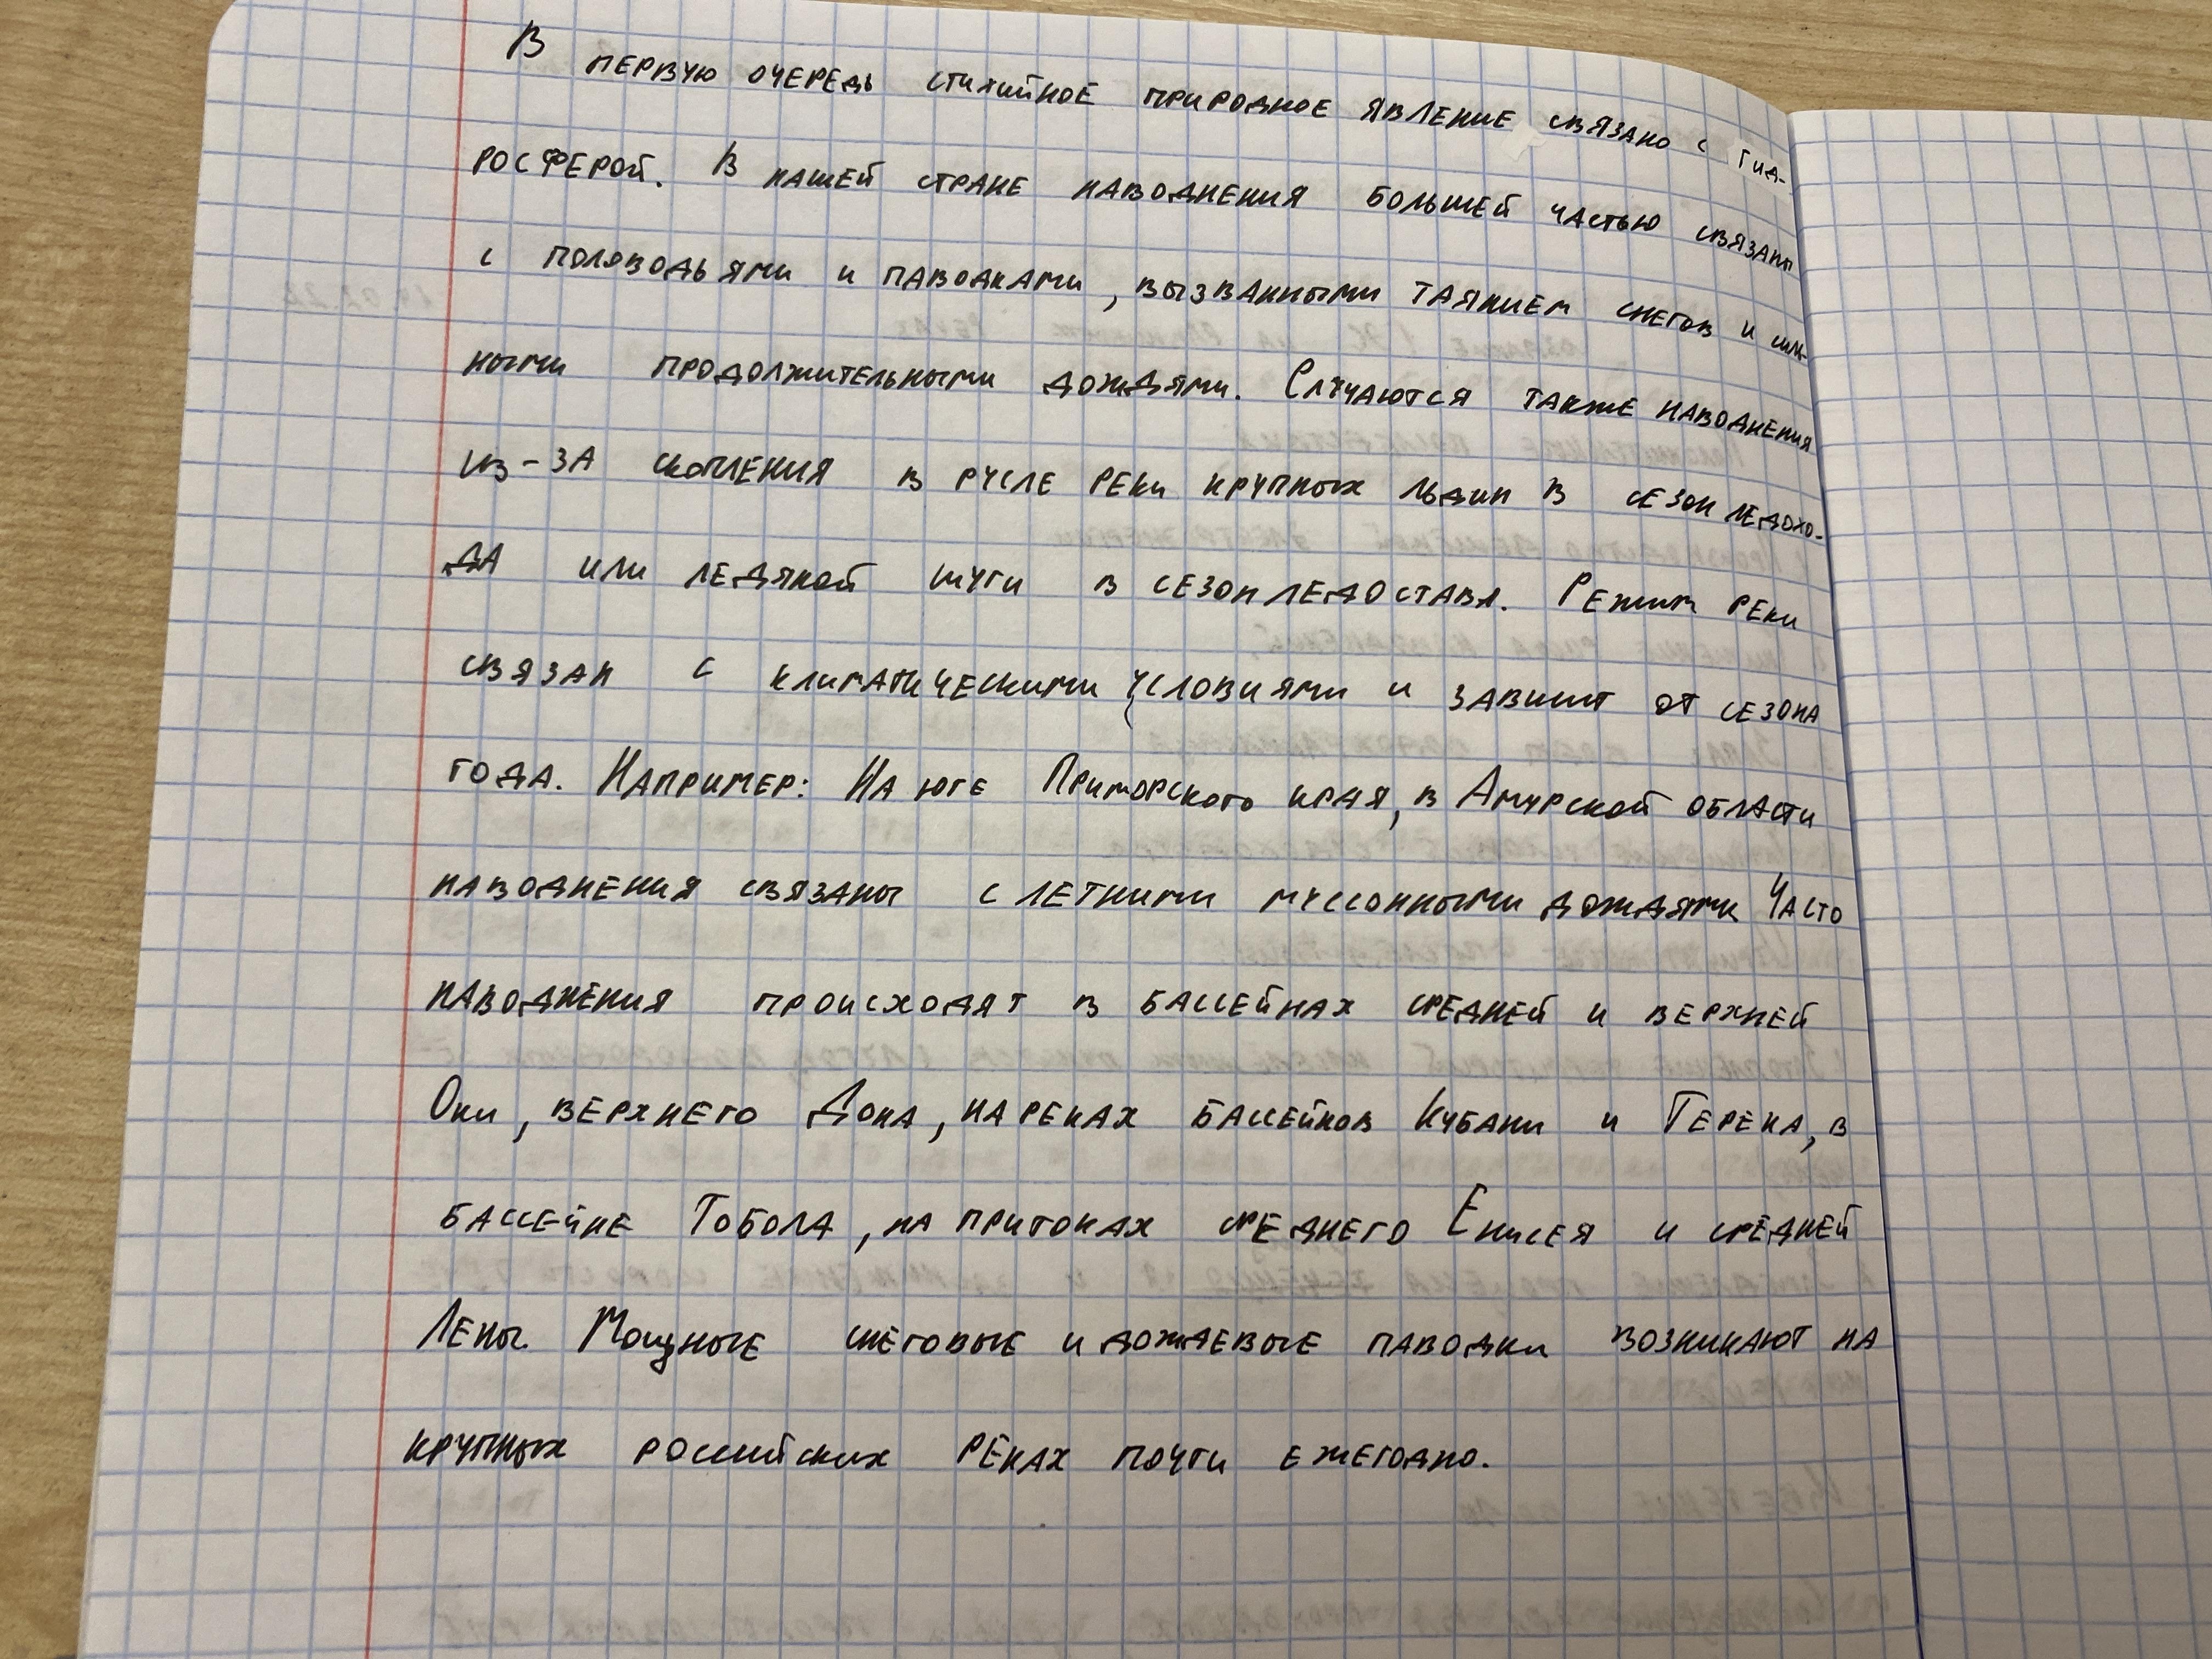 В первую очередь стихийное природное явление связано с гид-
росферой. В нашей стране наводнения большей частью связаны
с половодьями и паводками, вызванными таянием снегов и силь-
ными продолжительными дождями. Случаются также наводнения
из-за скопления в русле реки крупных льдин в сезон ледохо-
да или ледяной шуги в сезон ледостава. Режим реки
связан с климатическими условиями и зависит от сезона
года. Например: На юге Приморского края, в Амурской области
наводнения связаны с летними муссонными дождями Часто
наводнения происходят в бассейнах средней и верхней
Оки, верхнего Дона, на реках бассейнов Кубани и Терека, в
бассейне Тобола, на притоках среднего Енисея и средней
Лены. Мощные снеговые и дождевые паводки возникают на
крупных российских реках почти ежегодно.